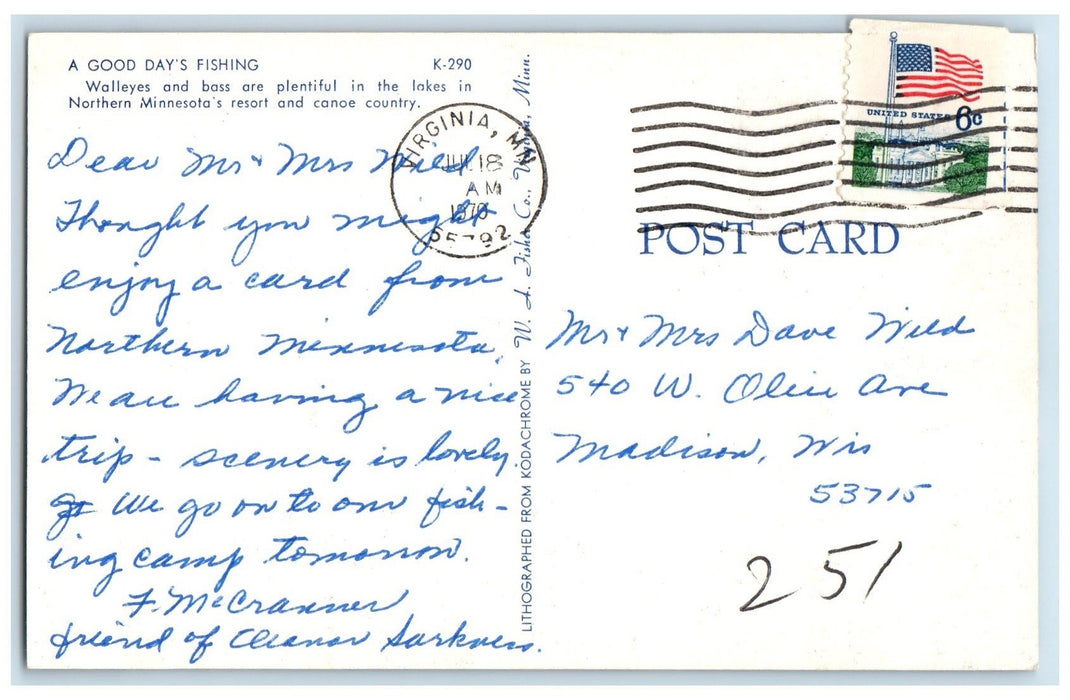 A GOOD DAY'S FISHING K-290
Walleyes and bass are plentiful in the lakes in
Northern Minnesota's resort and canoe country.
VIRGINIA, MN
JUL 18
AM
1970
55792
UNITED STATES 6c
POST CARD
Dear Mr + Mrs Wild
Thought you might
enjoy a card from
Northern Minnesota.
We are having a nice
trip - scenery is lovely.
We go on to our fish-
ing camp tomorrow.
F. McCranner
friend of Eleanor Sarkness.
LITHOGRAPHED FROM KODACHROME BY W. A. Fisher Co., Virginia, Minn.
Mr + Mrs Dave Wild
540 W. Olin Ave
Madison, Wis
53715
251